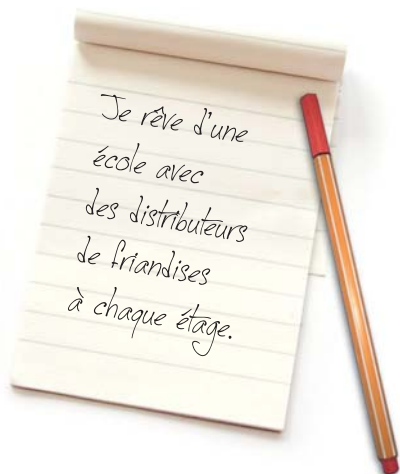 Je rêve d'une
école avec
des distributeurs
de friandises
à chaque étage.